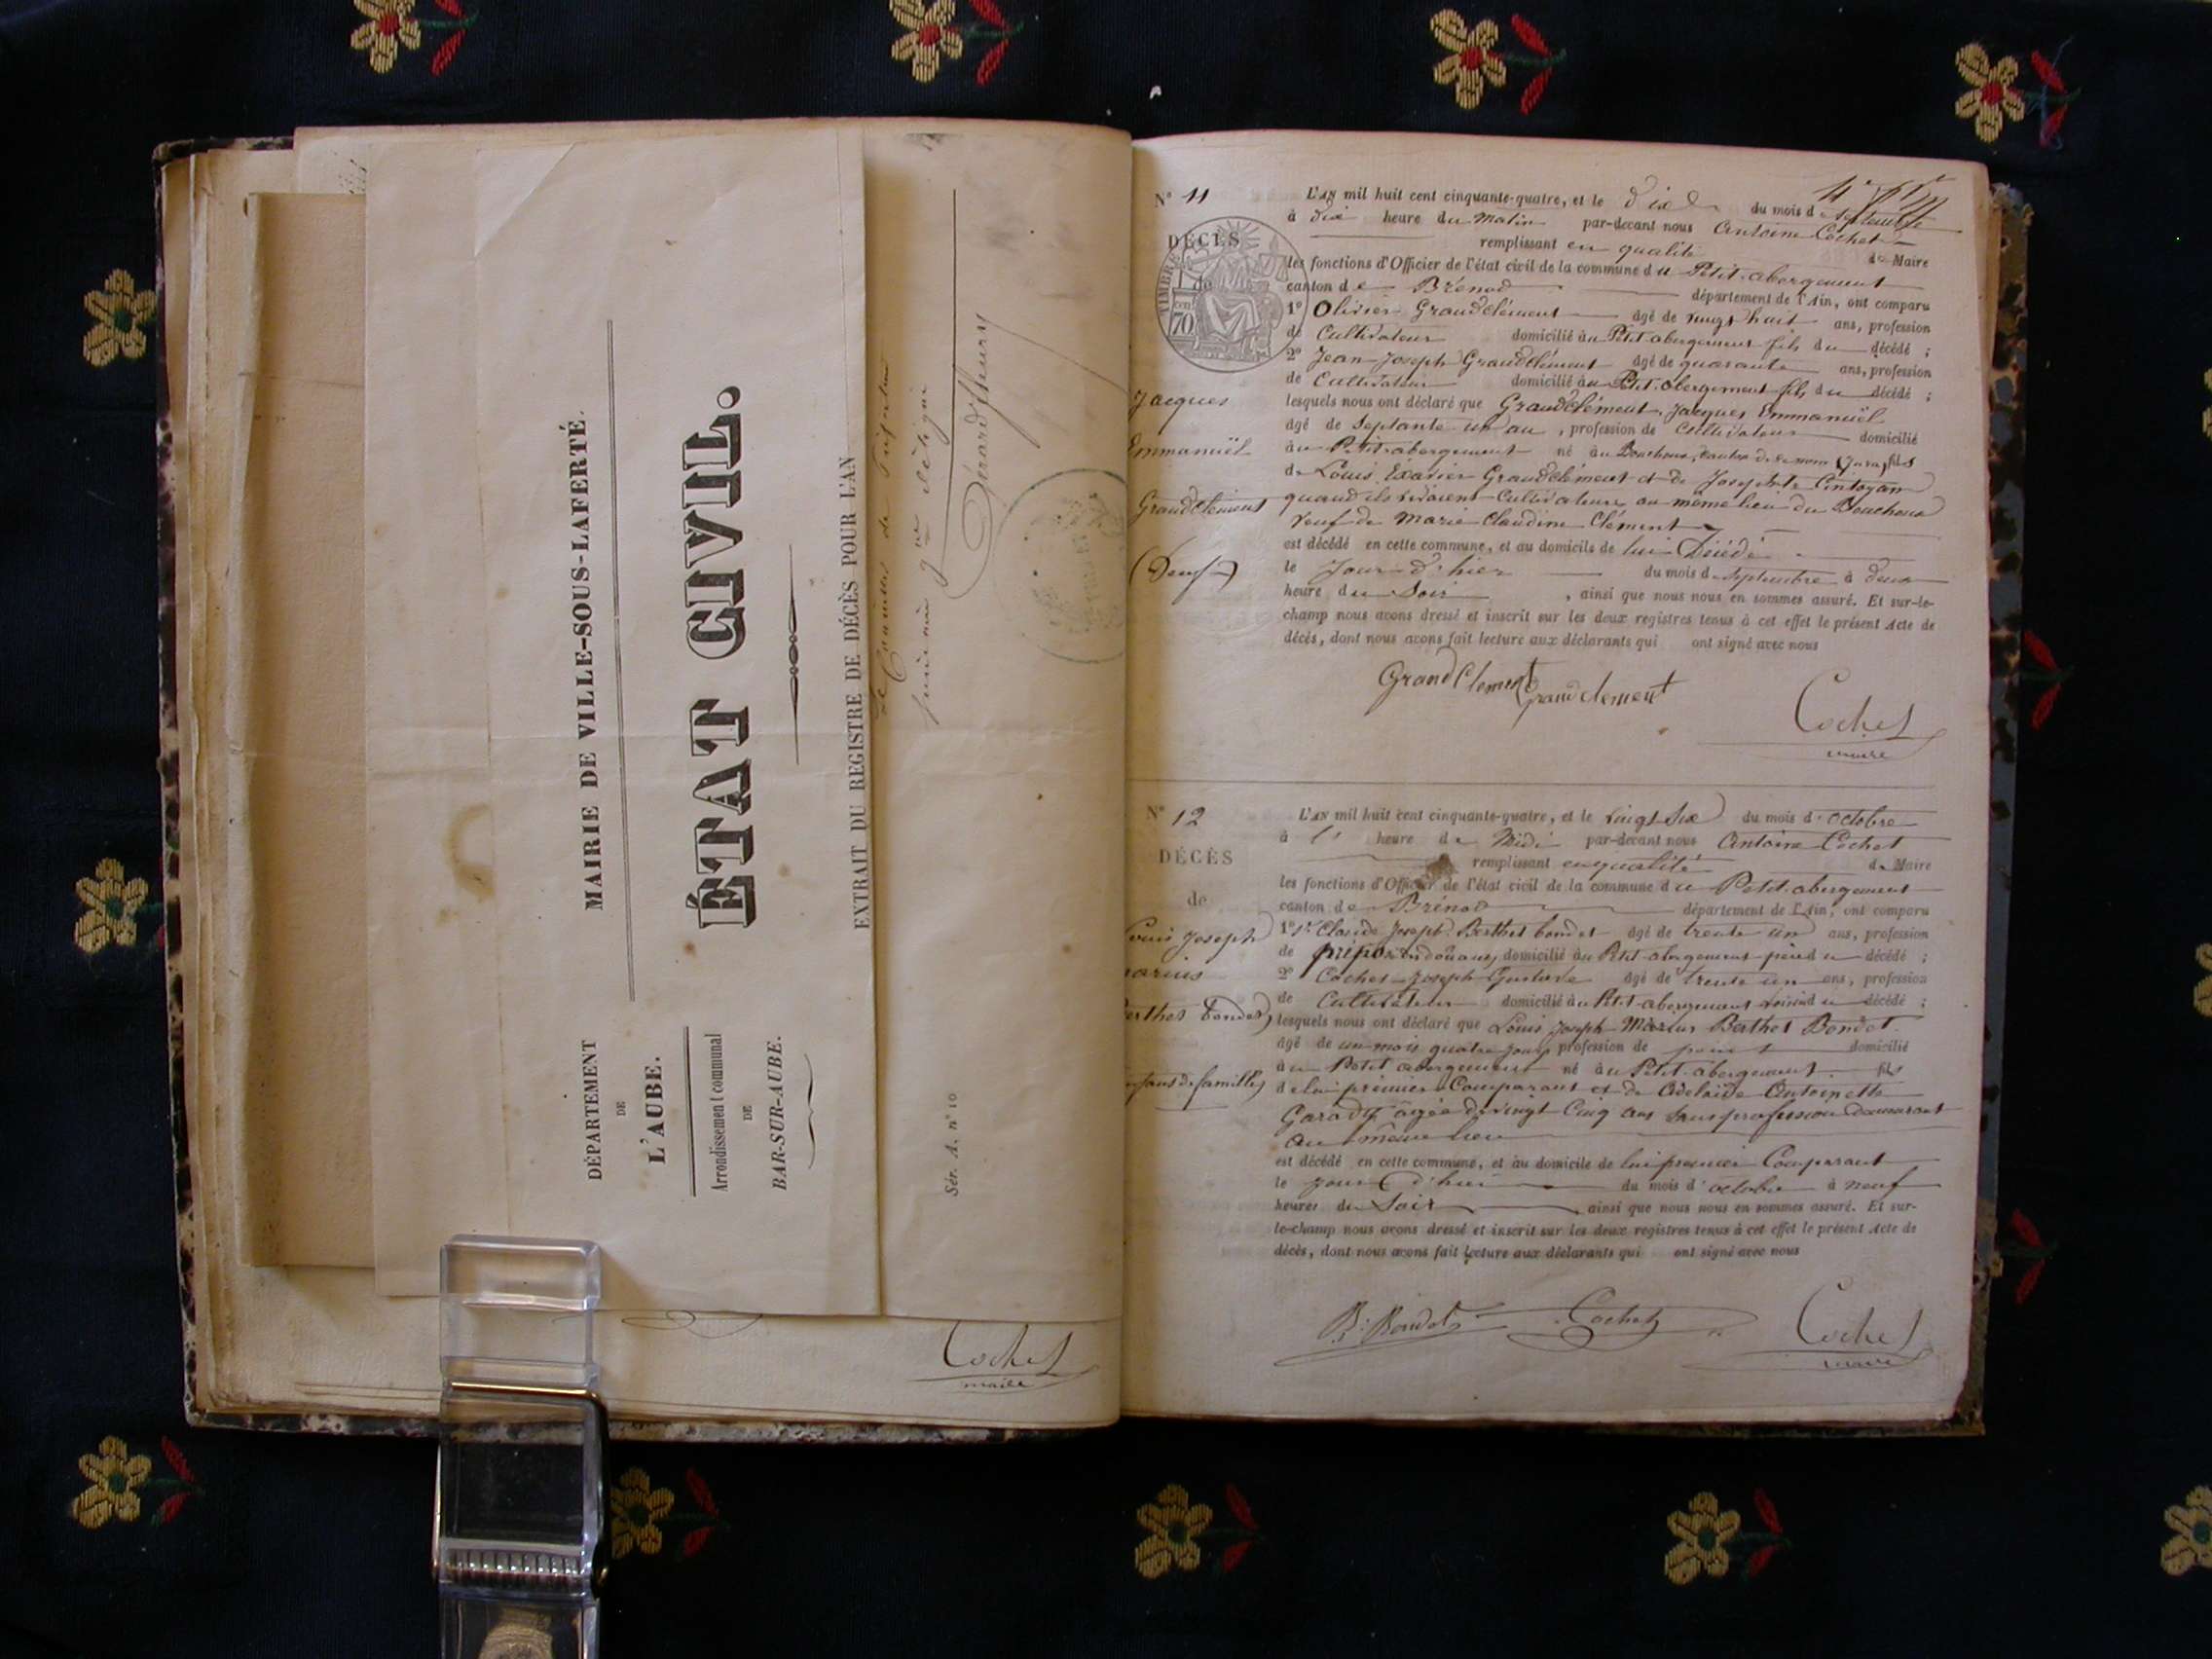 MAIRIE DE VILLE-SOUS-LAFERTÉ.
DÉPARTEMENT
DE
L'AUBE.
Arrondissement communal
DE
BAR-SUR-AUBE.
ÉTAT CIVIL.
EXTRAIT DU REGISTRE DE DÉCÈS POUR L'AN
Sér. A. n° 10
Cochet
maire
N° 11
DÉCÈS
de
TIMBRE
70
Jacques
Emmanuël
Grandclément
(Veuf)
L'AN mil huit cent cinquante-quatre, et le dix du mois de septembre
à dix heure du matin par-devant nous Antoine Cochet
remplissant en qualité de Maire
les fonctions d'Officier de l'état civil de la commune du Petit-abergement
canton de Brénod département de l'Ain, ont comparu
1° Olivier Grandclément âgé de vingt huit ans, profession
de Cultivateur domicilié au Petit abergement fils du décédé ;
2° Jean-Joseph Grandclément âgé de quarante ans, profession
de Cultivateur domicilié au Petit abergement fils du décédé ;
lesquels nous ont déclaré que Grandclément, Jacques Emmanuël
âgé de septante un an , profession de Cultivateur domicilié
au Petit abergement né au Bouchoux, (Jura) fils
de Louis Grandclément et de Josephte
quand ils vivaient Cultivateurs au même lieu du Bouchoux
veuf de Marie Claudine Clément
est décédé en cette commune, et au domicile de lui Décédé
le Jour d'hier du mois de septembre à deux
heure du Soir , ainsi que nous nous en sommes assuré. Et sur-le-
champ nous avons dressé et inscrit sur les deux registres tenus à cet effet le présent Acte de
décès, dont nous avons fait lecture aux déclarants qui ont signé avec nous
Grand Clement Grandclement
Cochet
maire
N° 12
DÉCÈS
de
Louis Joseph
marius
Berthet Bondet
enfans de famille
L'AN mil huit cent cinquante-quatre, et le vingt six du mois d'octobre
à l' heure de Midi par-devant nous Antoine Cochet
remplissant en qualité de Maire
les fonctions d'Officier de l'état civil de la commune du Petit-abergement
canton de Brénod département de l'Ain, ont comparu
1° Sr Claude Joseph Berthet bondet âgé de trente un ans, profession
de préposé des douanes, domicilié au Petit abergement père du décédé ;
2° Cochet Joseph Gustave âgé de trente un ans, profession
de Cultivateur domicilié au Petit abergement voisin du décédé ;
lesquels nous ont déclaré que Louis Joseph Marius Berthet Bondet
âgé de un mois quatre jours, profession de point domicilié
au Petit abergement né au Petit abergement fils
de lui premier Comparant et de Adelaïde Antoinette
âgée de vingt Cinq ans sans profession Demeurant
au même lieu
est décédé en cette commune, et au domicile de lui premier Comparant
le jour d'hier du mois d'octobre à neuf
heures du Soir ainsi que nous nous en sommes assuré. Et sur-
le-champ nous avons dressé et inscrit sur les deux registres tenus à cet effet le présent Acte de
décès, dont nous avons fait lecture aux déclarants qui ont signé avec nous
B. Bondet Cochet Cochet
maire